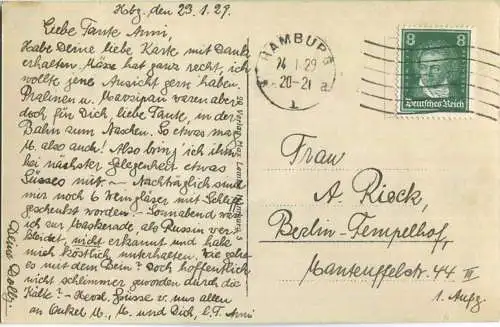 Hbg. den 23.1.29.
Liebe Tante Anni,
Habe Deine liebe Karte mit Dank
erhalten. Mäxe hat ganz recht, ich
wollte jene Ansicht gern haben.
Pralinen u. Marzipan waren aber
doch für Dich, liebe Tante, in der
Bahn zum Naschen. So etwas mag
M. also auch! Also bring' ich ihm
bei nächster Gelegenheit etwas
Süsses mit. - Nachträglich sind
mir noch 6 Weingläser mit Schliff
geschenkt worden. - Sonnabend war
ich zur Maskerade, als Russin ver-
kleidet, nicht erkannt und habe
mich köstlich unterhalten. Wie geht
es mit dem Bein? Doch hoffentlich
nicht schlimmer geworden durch die
Kälte? - Herzl. Grüsse v. uns allen
an Onkel M., M. und Dich, l. T. Anni
Deine
HAMBURG
24.1.29
20-21
1
8 8
Deutsches Reich
Frau
A. Rieck,
Berlin-Tempelhof,
Manteuffelstr. 44 III
1. Aufg.